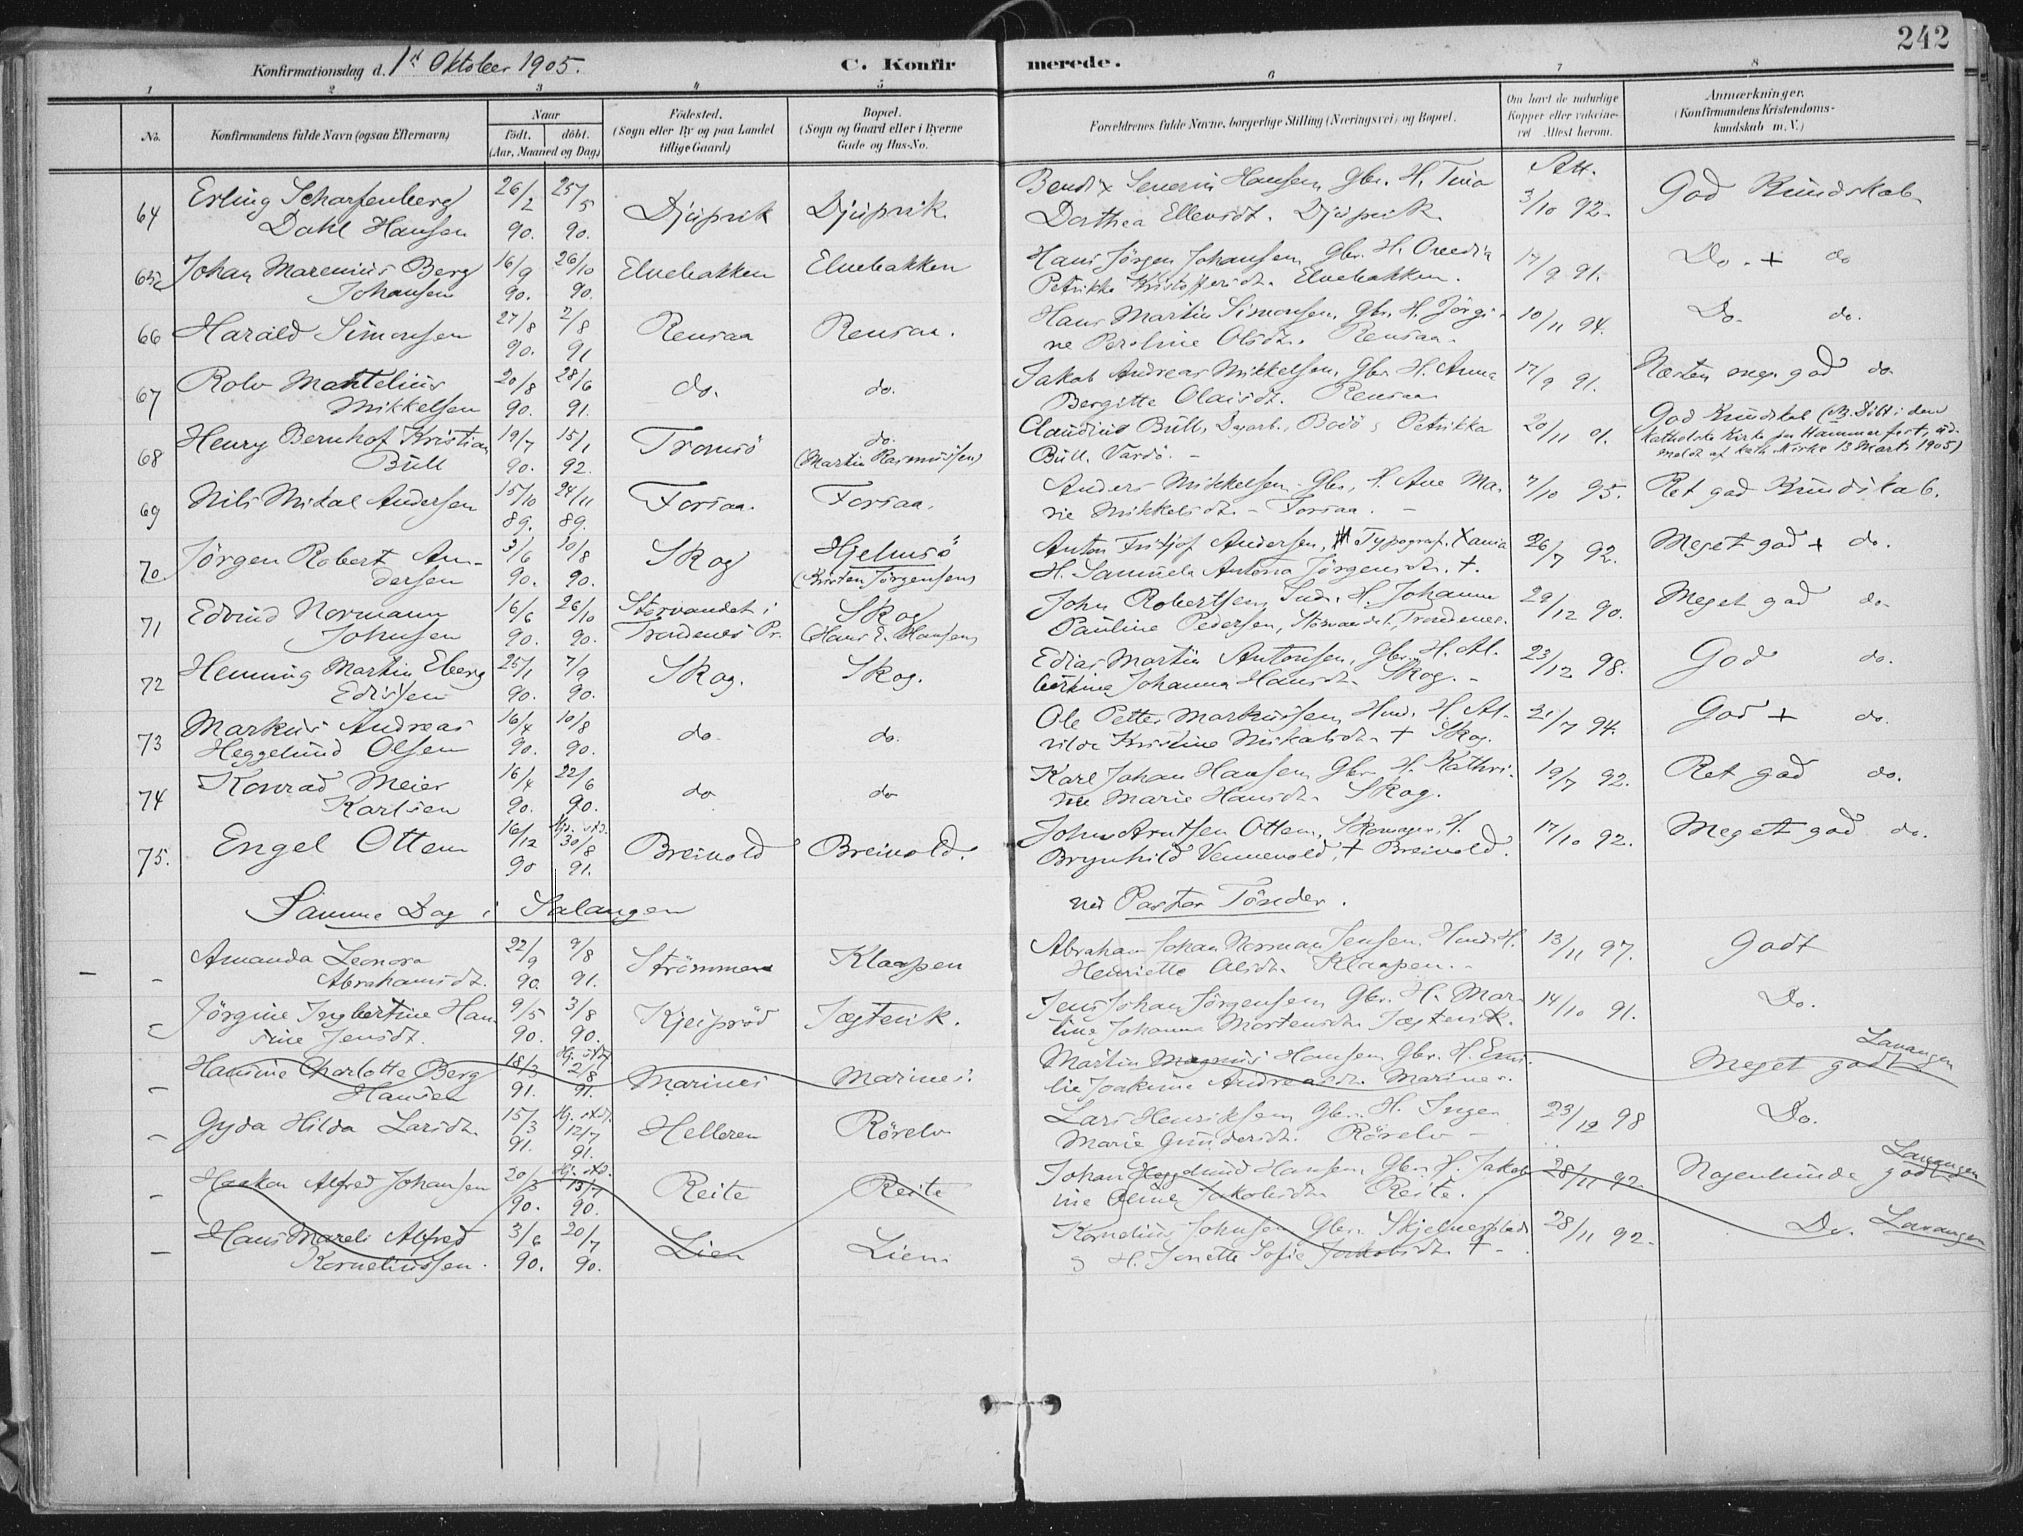 242
Konfirmationsdag d. 1ste Oktober 1905. C. Konfirmerede.
1 2 3 4 5 6 7 8
No. Konfirmandens fulde Navn (ogsaa Efternavn) Naar födt. döbt. (Aar, Maaned og Dag) Födested. (Sogn eller By og paa Landet tillige Gaard) Bopæl. (Sogn og Gaard eller i Byerne Gade og Hus-No. Forældrenes fulde Navne, borgerlige Stilling (Næringsvei) og Bopæl. Om havt de naturlige Kopper eller vakcineret. Attest herom. Anmærkninger. (Konfirmandens Kristendomskundskab m. V.)
64 Erling Scharfenberg 26/2 25/5 Djupvik Djupvik Bendix Senerin Hansen, Gbr. H. Tina Att. 3/10 92. God Kundskab
Dahl Hansen 90. 90. Dorthea Ellevsdt. Djupvik
65 Johan Marenius Berg 16/9 26/10 Elvebakken Elvebakken Hans Jörgen Johansen, Gbr. H. Ovedia 17/9 91. Do. + do
Johansen 90. 90. Petrikke Kristoffersdt. Elvebakken.
66 Harald Simonsen 27/8 2/8 Rensaa Rensaa. Hans Martin Simonsen, Gbr. H. Jörgi- 10/11 94. Do. do.
90. 91 ne Peroline Olsdt. Rensaa.
67 Rolv Mantelius 20/8 28/6 do. do. Jakob Andreas Mikkelsen, Gbr. H. Anna 17/9 91. Næsten meget god do
Mikkelsen 90. 91. Bergitte Olaisdt. Rensaa
68 Henry Bernhof Kristian 19/7 15/1 Tromsö do. Claudius Bull, Dgarb., Bodö & Petrikka 20/11 01. God Kundskab (NB. Döbt i den
Bull 90. 92. (Martin Rasmussen) Bull. Vardö. - katholske Kirke paa Hammerfest, ud-
meldt af kath. Kirke 13 Marts 1905)
69 Nils Mikal Andersen 15/10 24/11 Forsaa. Forsaa. Anders Mikkelsen Gbr. H. Ane Ma- 7/10 95. Ret god Kundskab.
89. 89. rie Mikkelsdt. - Forsaa. -
70 Jörgen Robert An- 3/6 10/8 Skog Hjelmsö Anton Fritjof Andersen, Typograf, Xania 26/7 92. Meget god + do.
dersen 90. 90. (Kristen Jörgensen) H. Samuela Antona Jörgensdt. +.
71 Edvind Normann 16/6 26/10 Storvandet i Skog John Robertsen, Ind. H. Johanne 29/12 90. Meget god do-
Johnsen 90. 90. Trondenes Pr. (Hans E. Hansen) Pauline Pedersen, Storvandet, Trondenes.
72 Henning Martin Eberg 25/1 7/9 Skog. Skog. Edias Martin Antonsen, Gbr. H. Al- 23/12 98. God do.
Edissen 90. 90. bertine Johanna Hansdt. Skog. -
73 Markus Andreas 16/4 10/8 do. do. Ole Petter Markussen Hmd. H. Al- 21/7 94. God + do.
Heggelund Olsen 90. 90. vilda Kristine Mikalsdt. + Skog.
74 Konrad Meier 16/4 22/6 do do Karl Johan Hansen, Gbr. H. Kathri- 19/7 92. Ret god do.
Karlsen 90. 90. ne Marie Hansdt. Skog.
75. Engel Ottem 16/12 Hj. std. 30/8 Breivold Breivold. John Arntsen Ottem, Skomager, H. 17/10 92. Meget god do.
90 91. Brynhild Vennevold, + Breivold.
Samme Dag i Salangen ved Pastor Tönder.
- Amanda Leonora 22/9 9/8 Strömmen Klaapen Abraham Johan Norman Jensen, Hmd. H. 13/11 97. Godt
Abrahamsdt. 90. 91. Henriette Olsdt. Klaapen. -
Jörgine Ingbertine Han- 9/5 3/8 Kjeipröd Jægtvik. Jens Johan Jörgensen Gbr. H. Mar- 14/10 91. Do.
sine Jensdt. 90. 90. tine Johanna Mortensdt. Jægtvik.
- Hansine Charlotte Berg 18/3 Hj. std. 2/8 Marines Marines. Martin Magnus Hansen Gbr. H. Emi- Meget godt Lavangen
Hansen 91. 91. lie Joakime Andreasdt. Marines.
- Gyda Hilda Larsdt. 15/3 Hj. std. 12/7 Helleren Rörelv Lars Henriksen Gbr. H. Inger 23/12 98 Do.
91. 91. Marie Gundersdt. Rörelv -
- Haakon Alfred Johansen 20/3 Hj. std. 13/7 Reite Reite Johan Heggelund Hansen, Gbr. H. Jakob- 28/11 92. Nogenlunde godt Lavangen
90. 90. ine Oline Jakobsdt. Reite.
- Hans Mareli Alfred 3/6 20/7 Lien Lien Kornelius Johnsen Gbr. Skjelnesplads 28/11 92. Do. Lavangen
Korneliussen. 90. 90. & H. Jonette Sofie Jakobsdt. + -